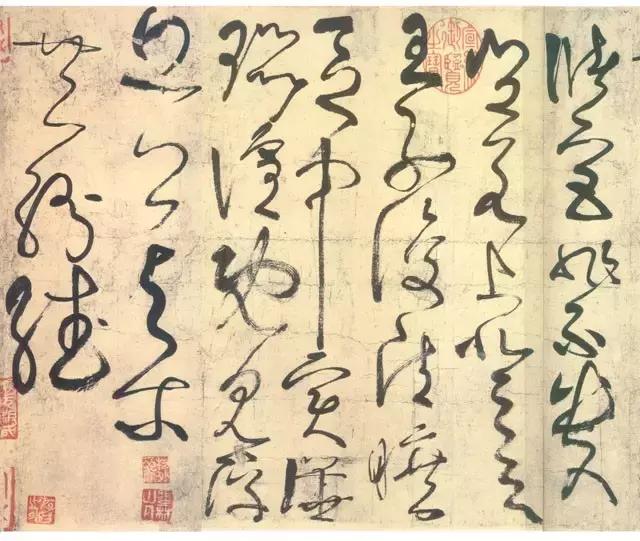 儲宮非不貴
豈若上登天
王子復清曠
區中實譁
囂喧既見浮
丘公與尔
共紛繙